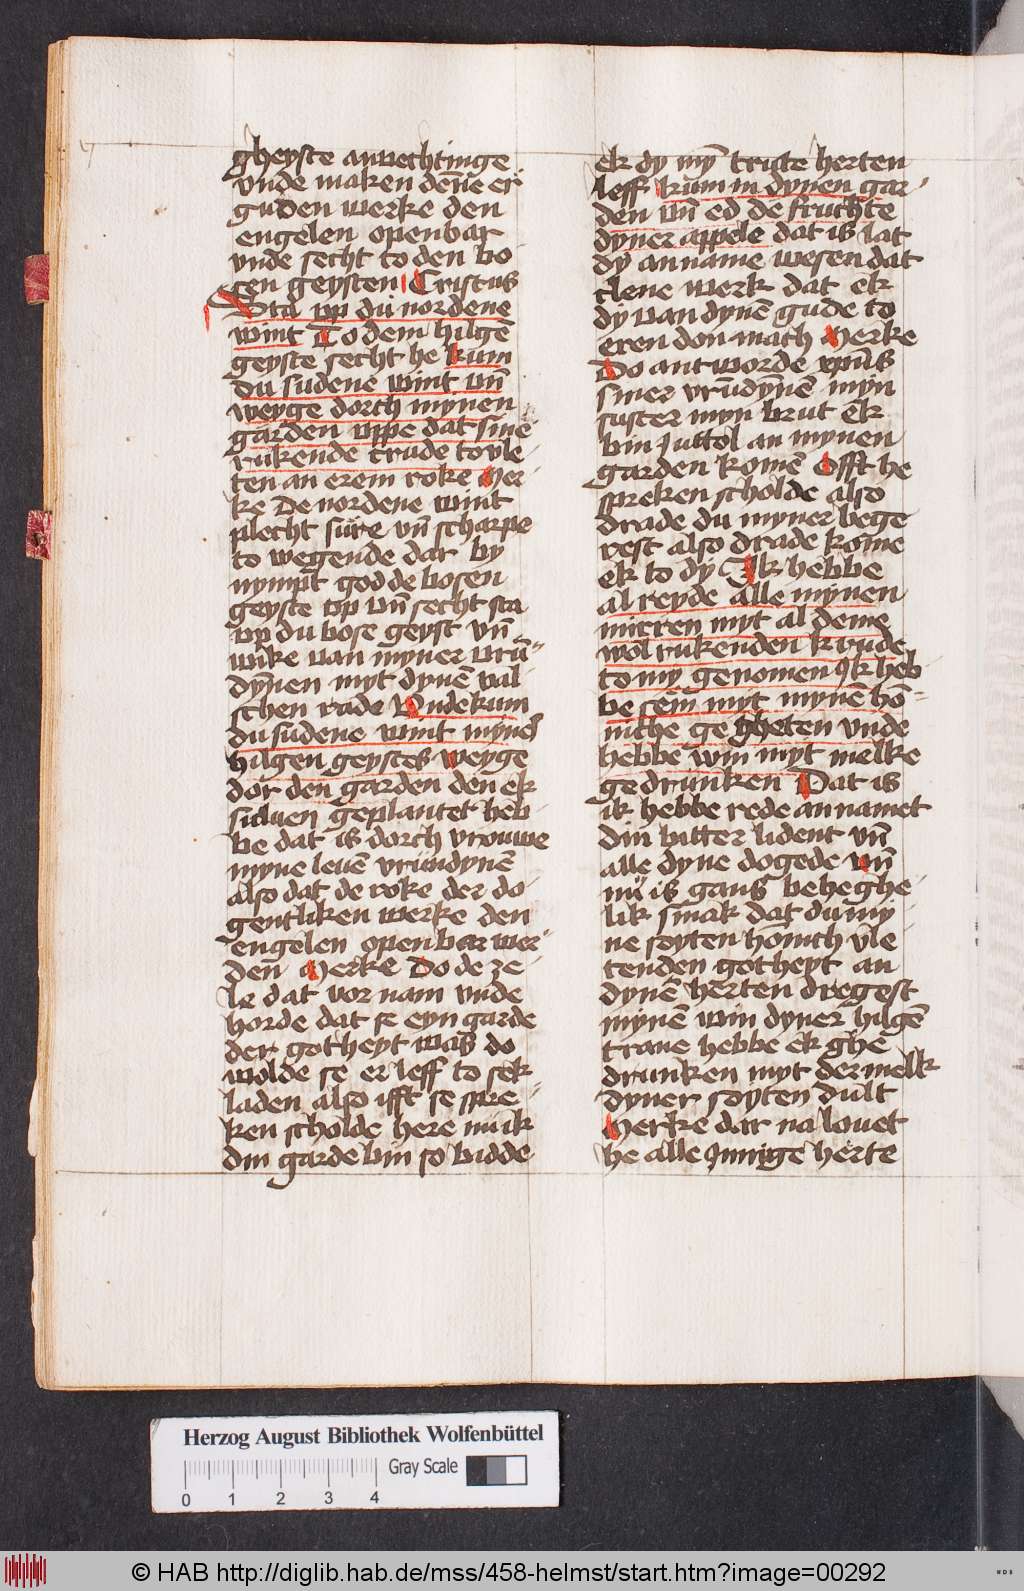 gheyste anvechtinge
vnde maken dēne er
guden werke den
engelen openbar
vnde secht to den bo
sen geysten Cristus
Sta vp du nordene
wint To dem hilgē
geyste secht he kum
du sudene wint vn̄
weyge dorch mynen
garden vppe dat sine
rukende crude to vle
ten an erem roke Mer
ke De nordene wint
plecht sure vn̄ scharpe
to wegende dar by
nympt god de bosen
geyste vp vn̄ secht sta
vp du bose geyst vn̄
wike van myner vrū
dynen myt dynē val
schen rade Vnde kum
du sudene wint mynes
hilgen geystes weyge
dor den garden den ek
suluen geplantet heb
be dat is dorch vrouwe
myne leuē vrundynē
also dat de roke der do
gentliken werke den
engelen openbar wer
den Merke Do de ze
le dat vor nam vnde
horde dat se eyn garde
der gotheyt was do
wolde se er leff to sek
laden also ifft se spre
ken scholde here nu ik
din garde bin so bidde
ek dy my triste herten
leff kum in dynen gar
den vn̄ ed de fruchte
dyner appele dat is lat
dy anname wesen dat
clene werk dat ek
dy van dynē gude to
eren don mach Merke
Do antworde xpūs
siner vrūdynē myn
suster myn brut ek
bin juttol an mynen
garden komē Offt he
spreken scholde also
drade du myner bege
rest also drade kome
ek to dy Ik hebbe
al reyde alle mynen
mirren myt al deme
wol rukenden krude
to my genomen Ik heb
be sēm myt mynē hō
niche ge gheten vnde
hebbe win myt melke
gedrunken Dat is
ik hebbe rede annamet
din bitter lident vn̄
alle dyne dogede vn̄
nu is gans beheghe
lik smak dat du my
ne soyten honnich vle
tenden gotheyt an
dynē herten dregest
mynē win dyner hilgē
trane hebbe ek ghe
drunken myt der melk
dyner soyten dult
Merke dar na louet
he alle Innige herte
Herzog August Bibliothek Wolfenbüttel
Gray Scale
0 1 2 3 4
© HAB http://diglib.hab.de/mss/458-helmst/start.htm?image=00292